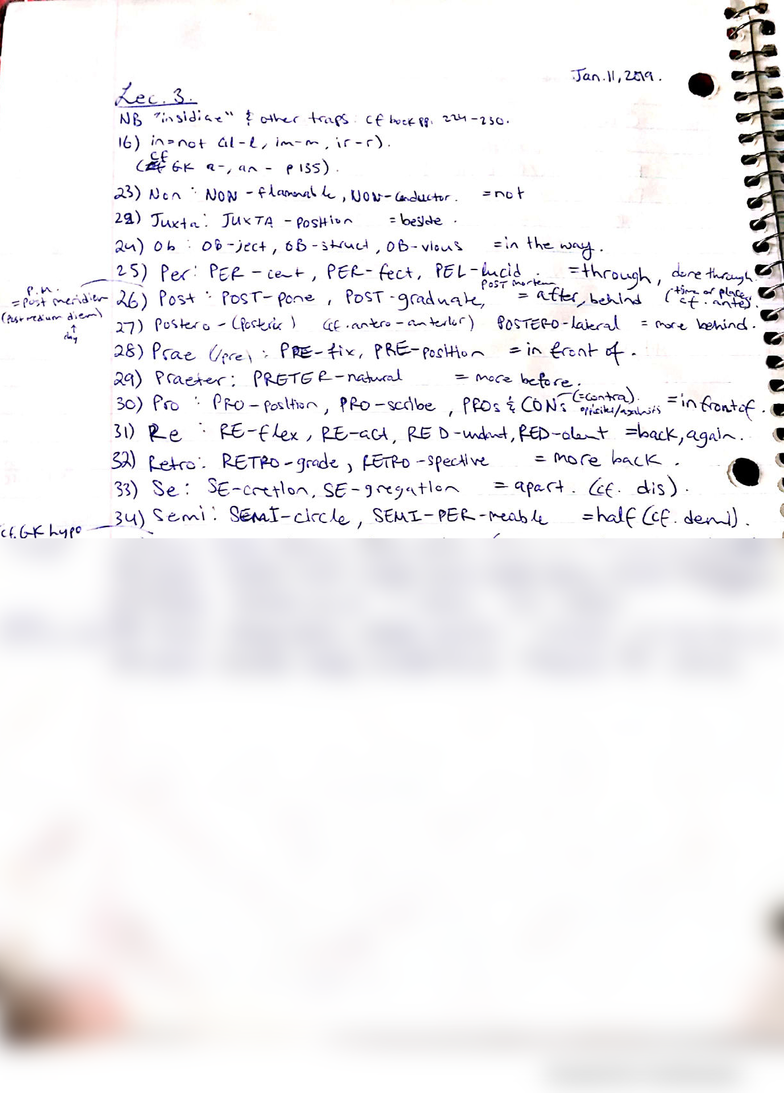 Jan. 11, 2019.
Lec. 3.
NB "insidiae" & other traps: cf book pp. 224-230.
16) in=not (il-l, im-m, ir-r).
(cf GK a-, an- p 135).
23) Non: NON-flammable, NON-conductor. =not
22) Juxta: JUXTA-position =beside.
24) Ob: OB-ject, OB-struct, OB-vious =in the way.
25) Per: PER-cent, PER-fect, PEL-lucid. =through, done through
p.m. = post meridiem
(post medium diem)
↑
day
26) Post: POST-pone, POST-graduate, POST mortem = after, behind (time or place, cf. ante).
27) Postero-(posteric) (cf. antero-anterior) POSTERO-lateral = more behind.
28) Prae (/pre): PRE-fix, PRE-position =in front of.
29) Praeter: PRETER-natural = more before.
30) Pro: PRO-position, PRO-scribe, PROs & CONs (=contra). =in front of.
31) Re: RE-flex, RE-act, RED-undant, RED-olent =back, again.
32) Retro: RETRO-grade, RETRO-spective = more back.
33) Se: SE-cretion, SE-gregation = apart. (cf. dis).
34) Semi: SEMI-circle, SEMI-PER-meable =half (cf. demi).
cf. GK hypo